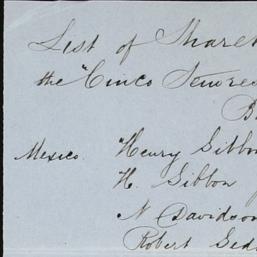 List of Shareh
the "Cinco Señores
Mexico "Henry Gibbon
H. Gibbon
N Davidson
Robert Ged